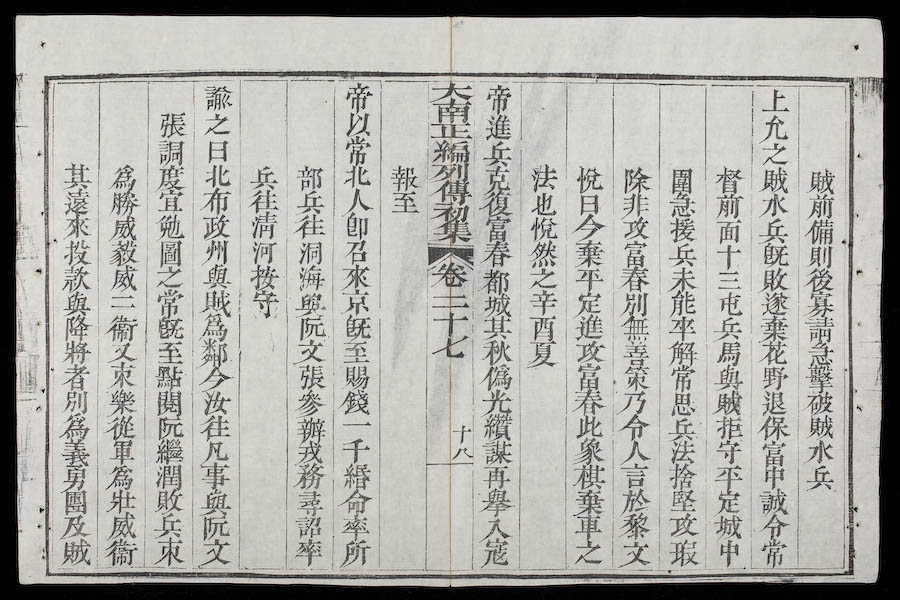 賊前備則後寡請急擊破賊水兵
上允之賊水兵既敗遂棄花野退保富中誠令常
督前面十三屯兵馬與賊拒守平定城中
圍急援兵未能卒解常思兵法捨堅攻瑕
除非攻富春別無善策乃令人言於黎文
悅曰今棄平定進攻富春此象棋棄車之
法也悅然之辛酉夏
帝進兵克復富春都城其秋僞光纘謀再舉入寇
大南正編列傳初集 卷二十七 十八
報至
帝以常北人卽召來京旣至賜錢一千緡命率所
部兵往洞海與阮文張參辦戎務尋詔率
兵往淸河按守
諭之曰北布政州與賊爲鄰今汝往凡事與阮文
張詷度宜勉圖之常旣至點閱阮繼潤敗兵柬
爲勝威毅威二衞又柬樂從軍爲壯威衞
其遠來投款與降將者別爲義勇團及賊